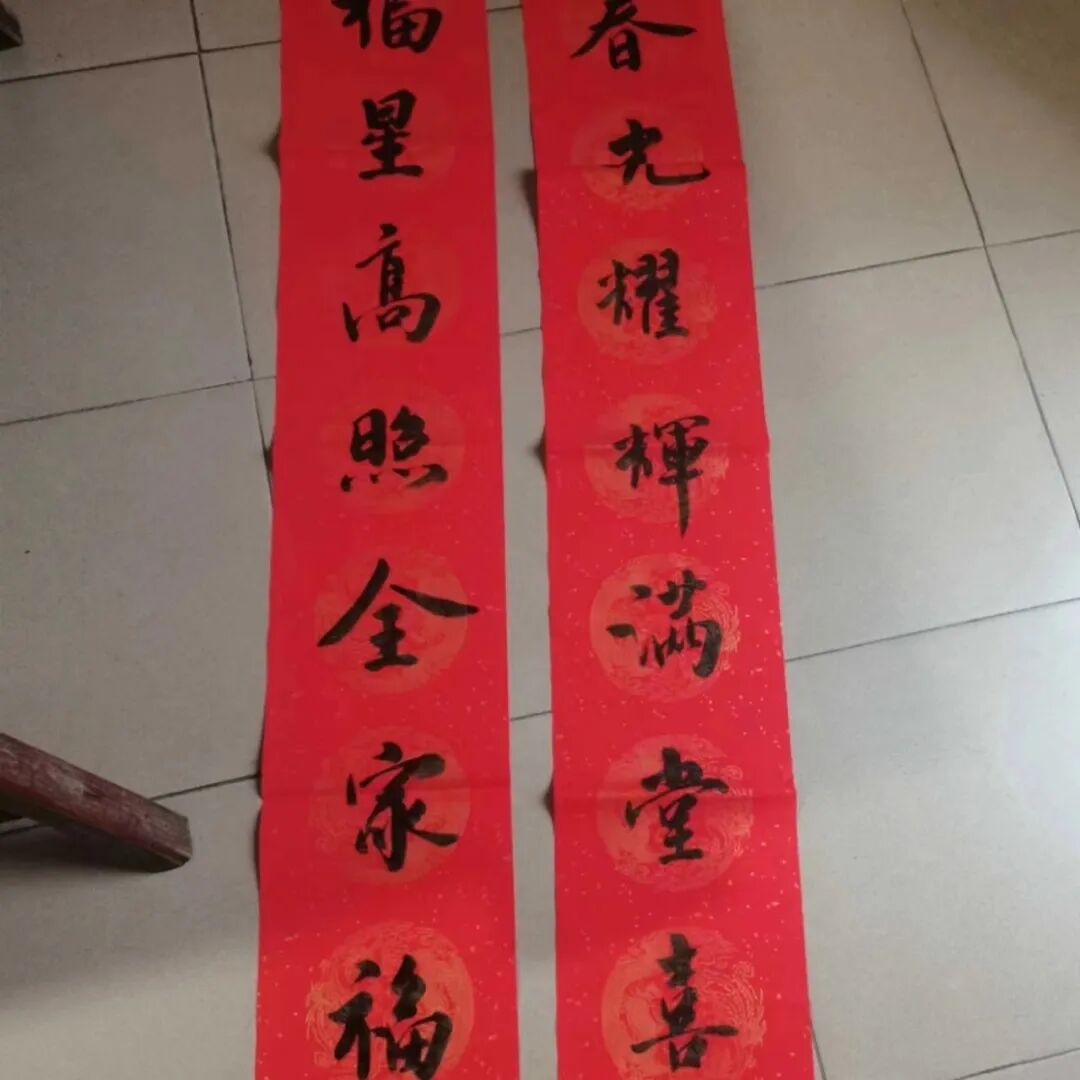 春光耀輝满堂喜
福星高照全家福